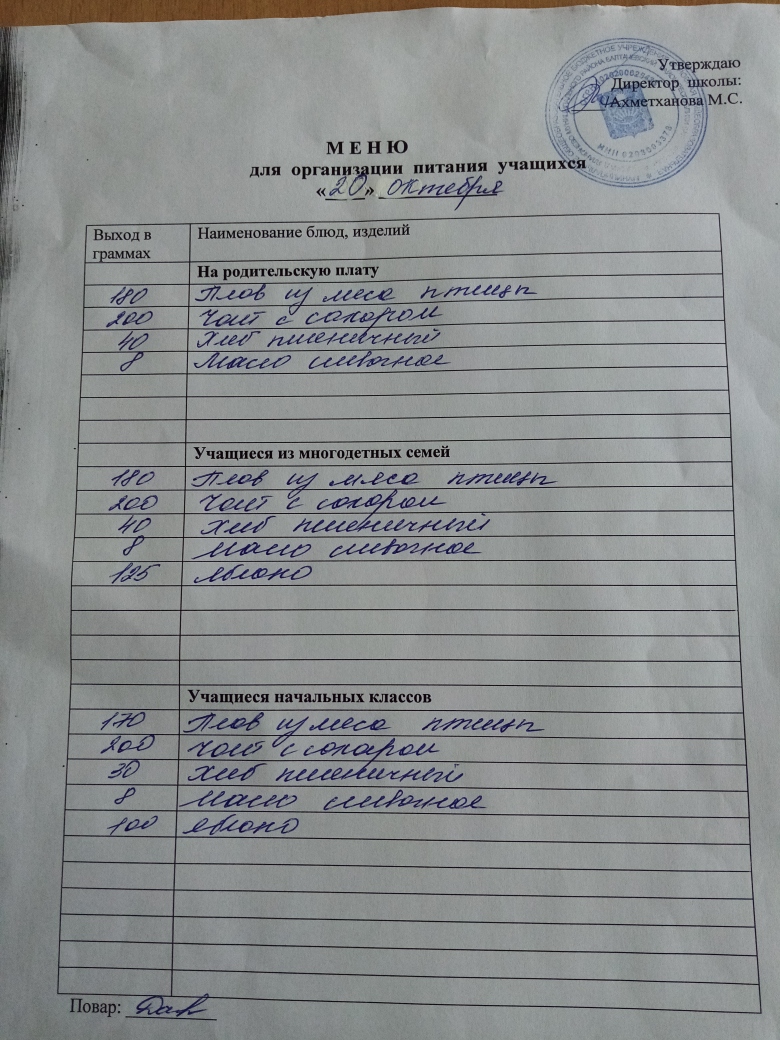 Утверждаю
Директор школы:
Ахметханова М.С.
ИНН 0208003375
МЕНЮ
для организации питания учащихся
«20» октября
Выход в граммах Наименование блюд, изделий
На родительскую плату
180 Плов из меса птицы
200 Чай с сахаром
40 Хлеб пшеничный
8 Масло сливочное
Учащиеся из многодетных семей
180 Плов из мяса птицы
200 Чай с сахаром
40 Хлеб пшеничный
8 Масло сливочное
125 яблоко
Учащиеся начальных классов
170 Плов из меса птицы
200 Чай с сахаром
30 Хлеб пшеничный
8 Масло сливочное
100 яблоко
Повар: